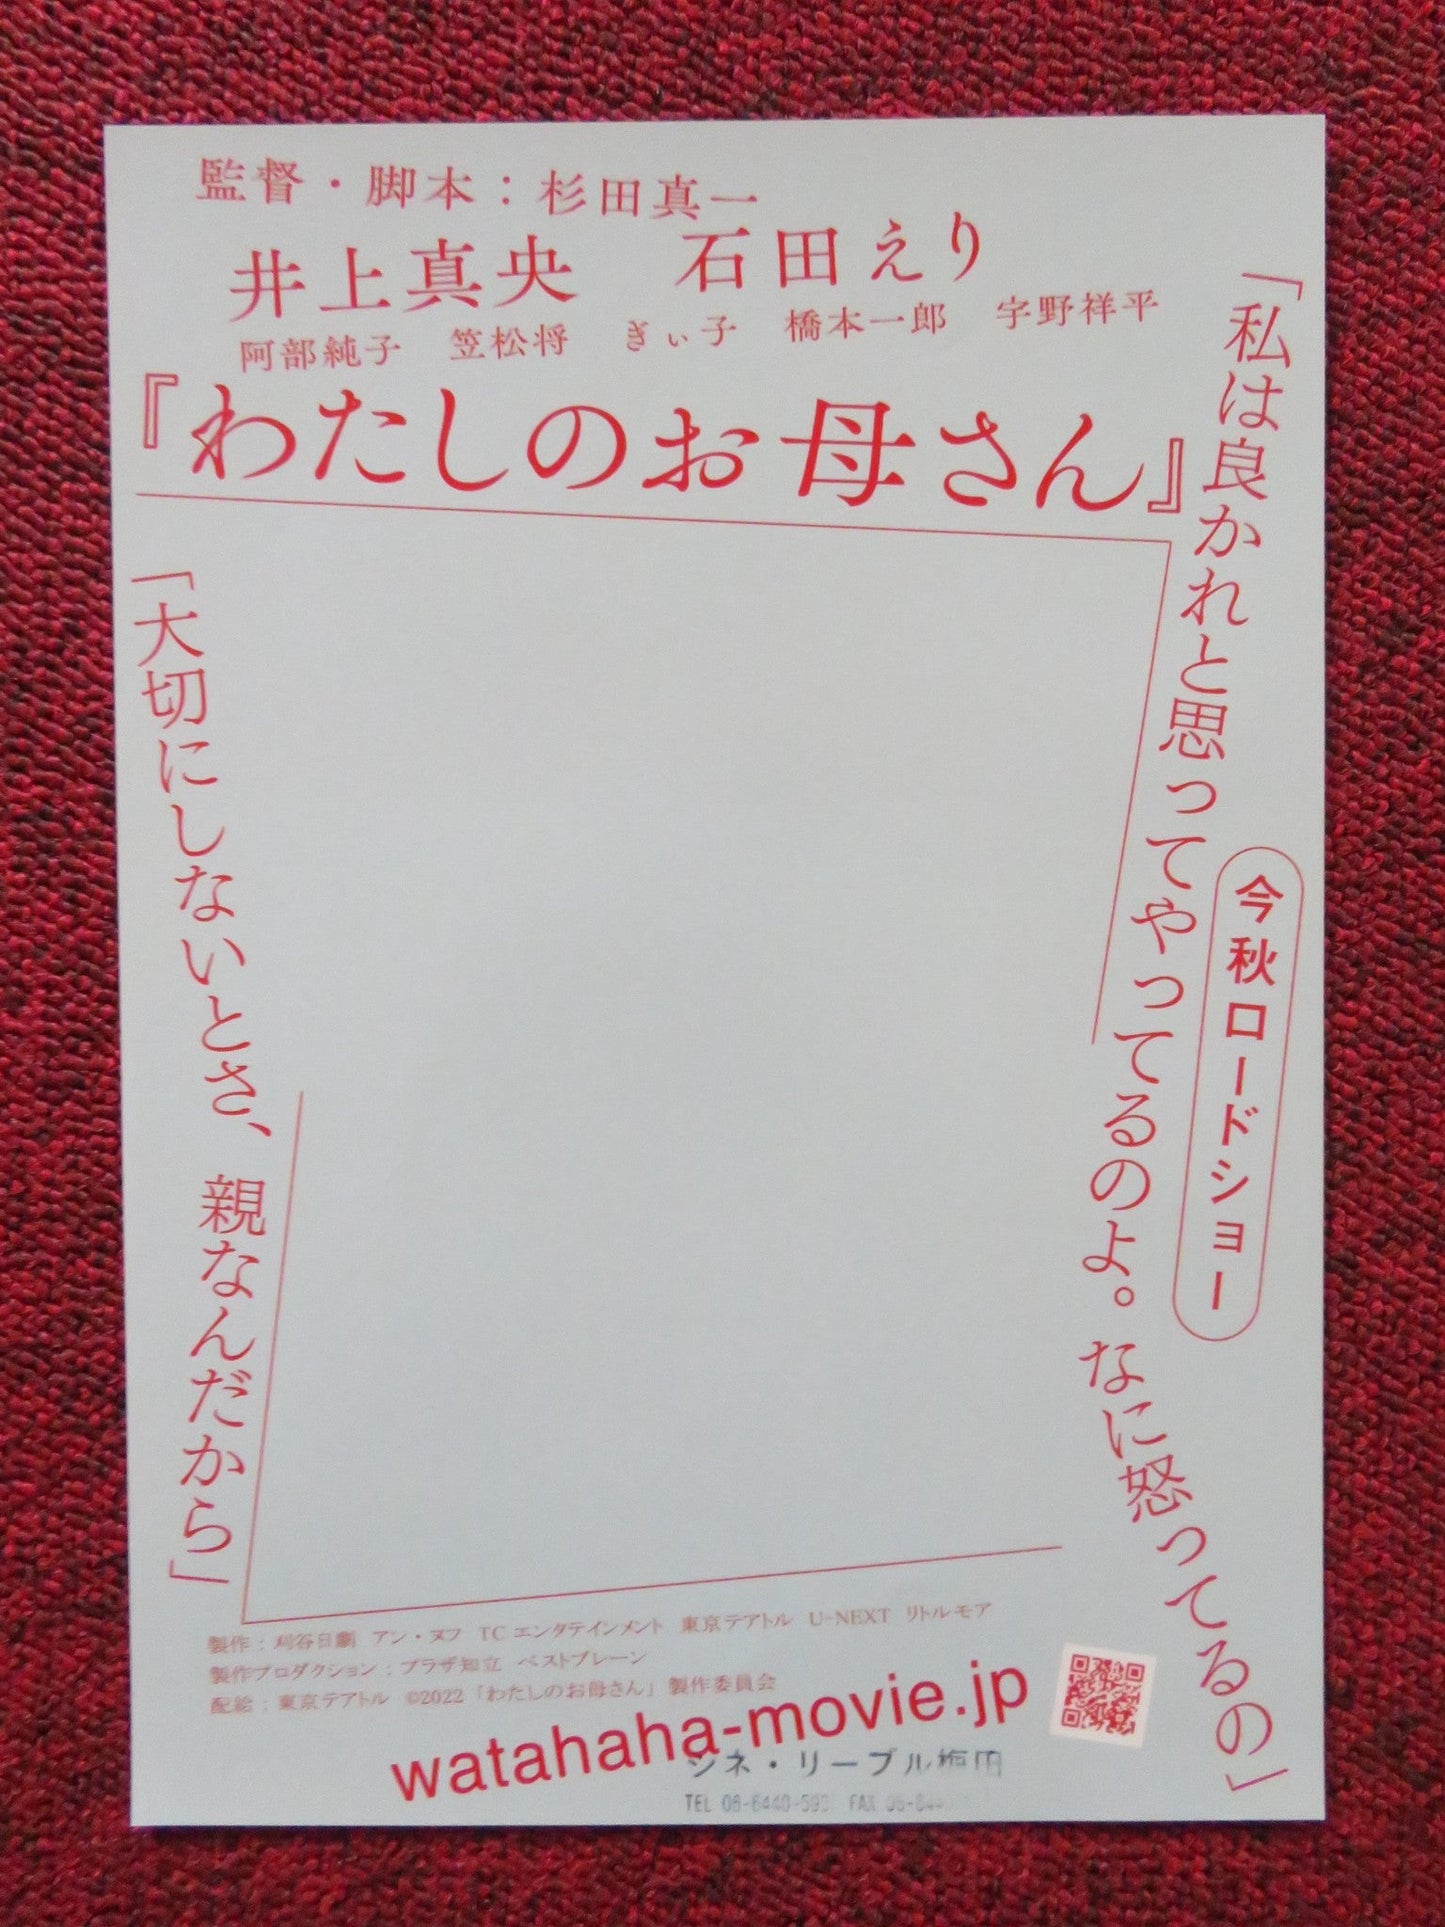 監督・脚本：杉田真一
井上真央　石田えり
阿部純子　笠松将　ぎぃ子　橋本一郎　宇野祥平
『わたしのお母さん』
「私は良かれと思ってやってるのよ。なに怒ってるの」
今秋ロードショー
「大切にしないとさ、親なんだから」
製作：刈谷日劇　アン・ヌフ　TCエンタテインメント　東京テアトル　U-NEXT　リトルモア
製作プロダクション：プラザ知立　ベストブレーン
配給：東京テアトル　©2022「わたしのお母さん」製作委員会
watahaha-movie.jp
シネ・リーブル梅田
TEL 06-6440-593
FAX 06-644